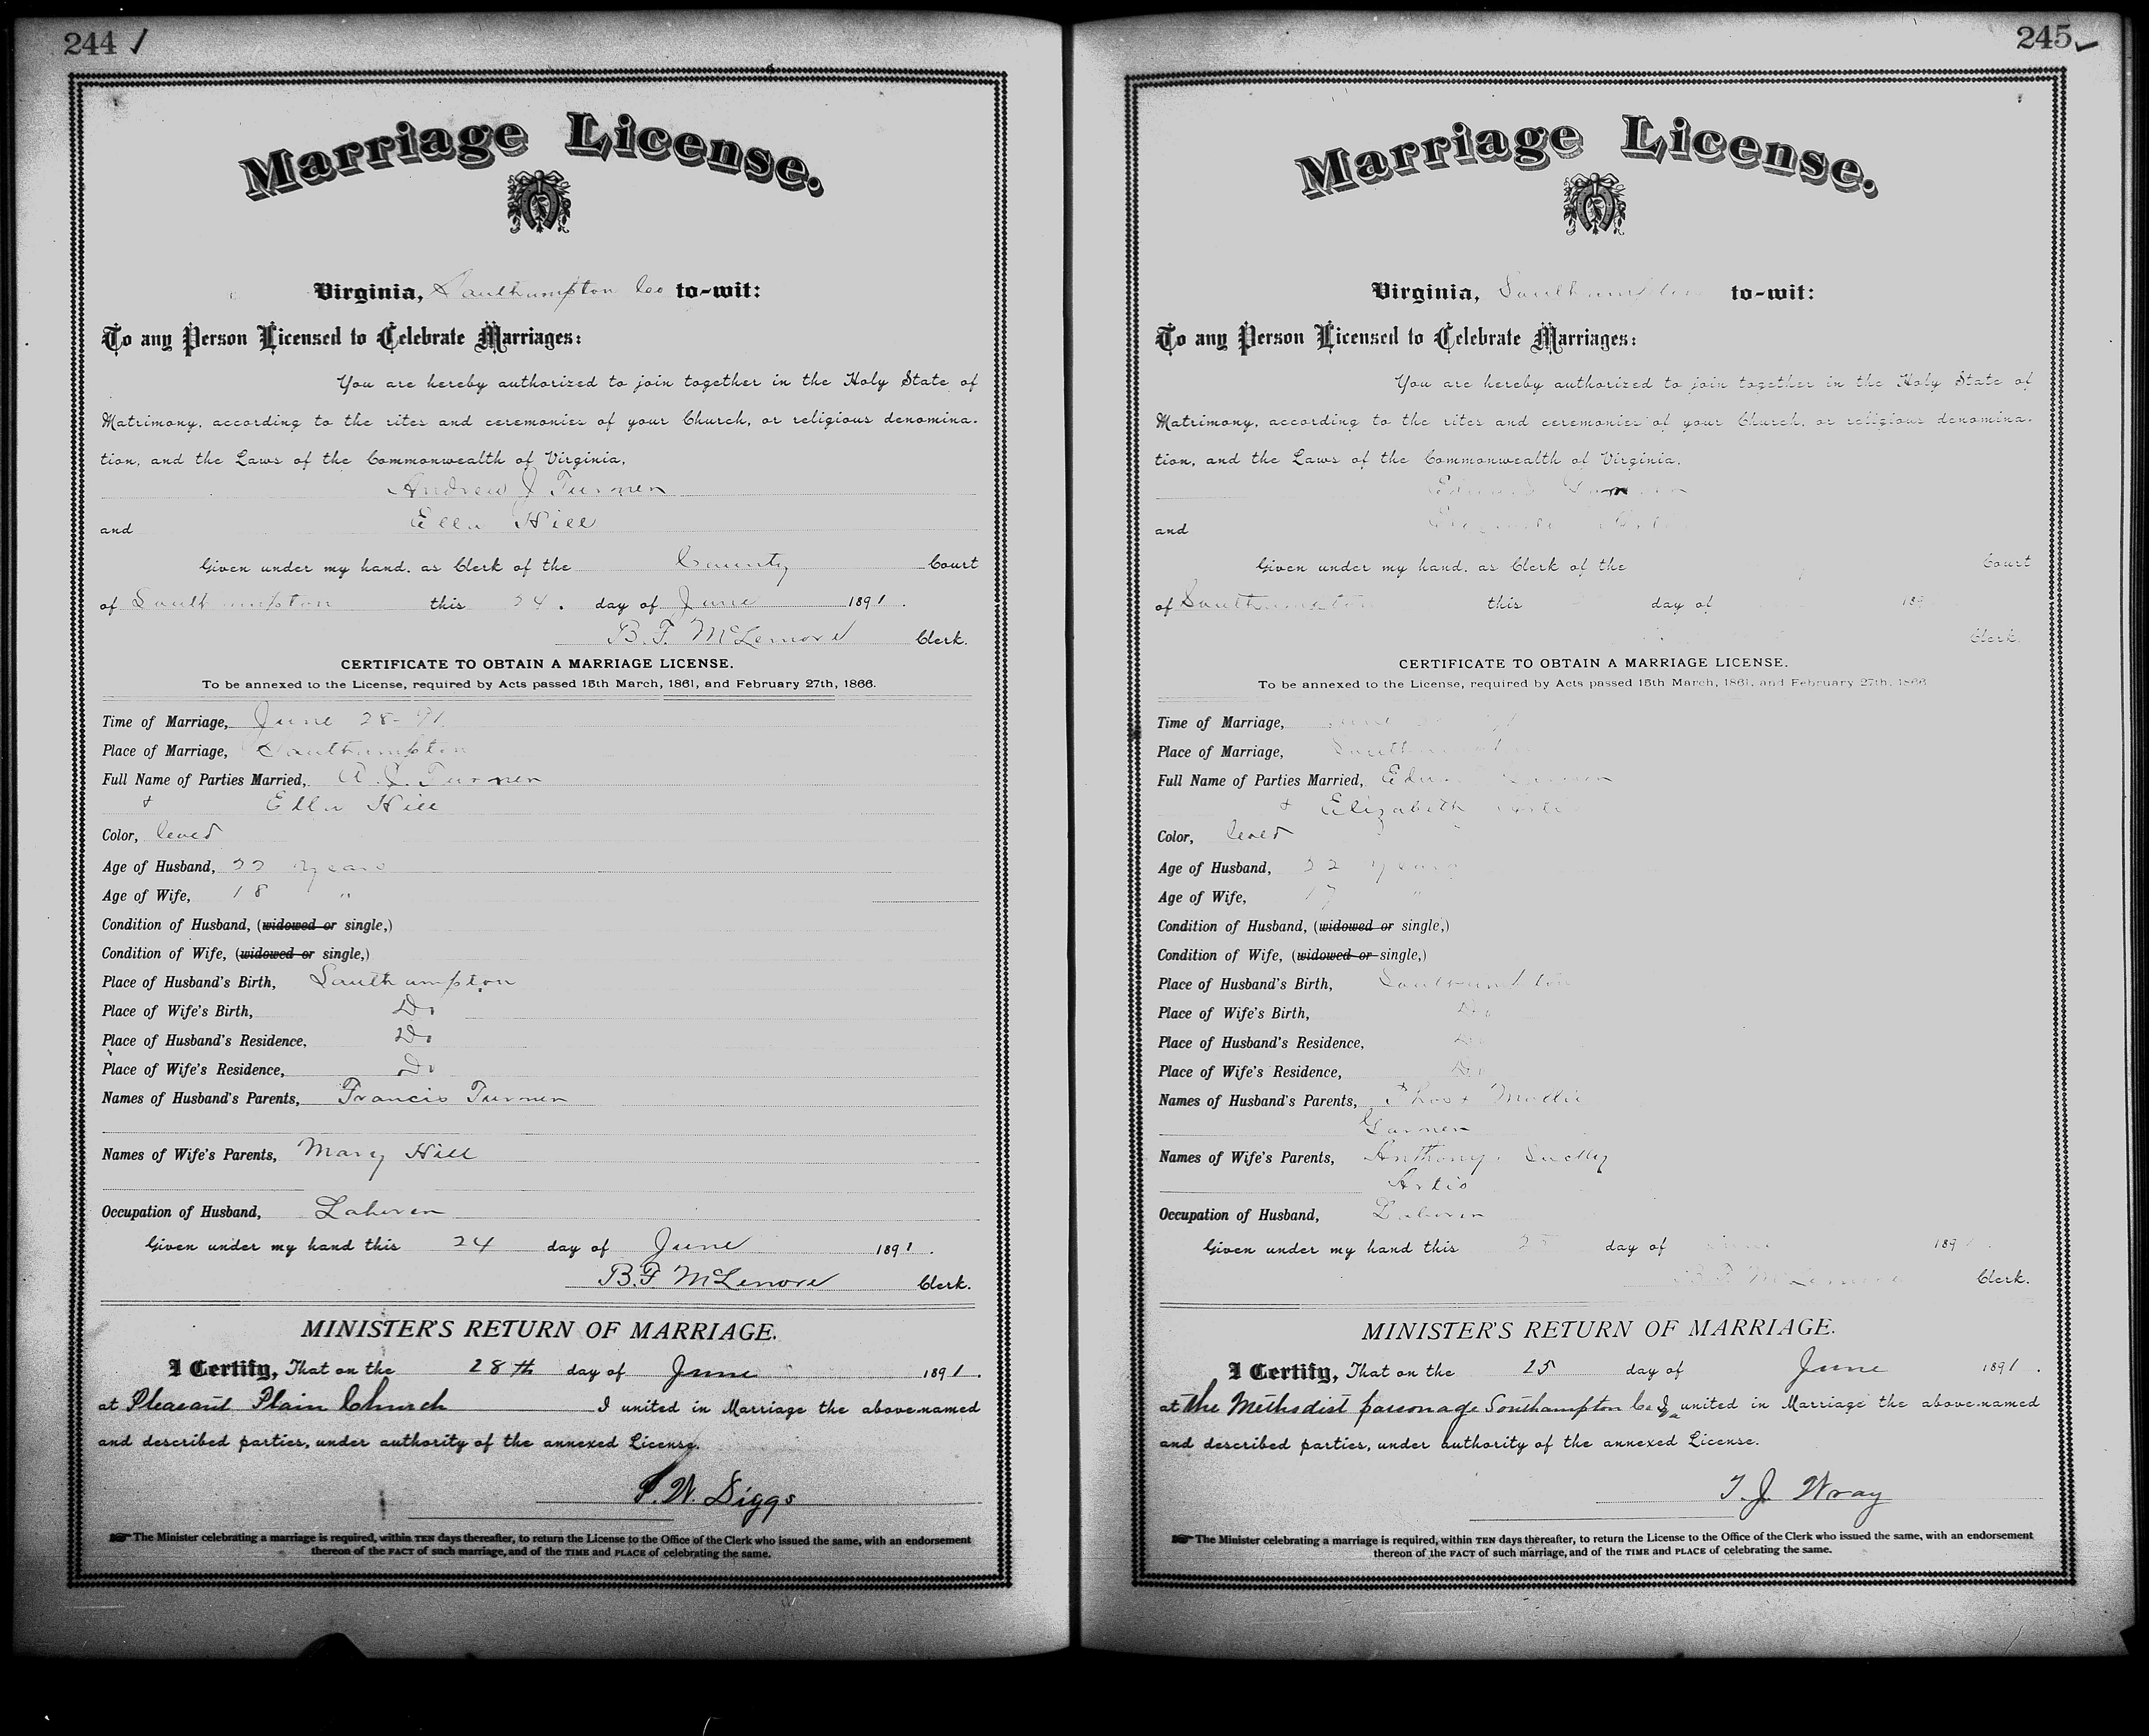 244
Marriage License.
Virginia, Southampton Co to-wit:
To any Person Licensed to Celebrate Marriages:
You are hereby authorized to join together in the Holy State of
Matrimony, according to the rites and ceremonies of your Church, or religious denomina-
tion, and the Laws of the Commonwealth of Virginia,
Andrew J Turner
and Ella Hill
Given under my hand, as Clerk of the County Court
of Southampton this 24. day of June 1891.
B. F. McLemore Clerk.
CERTIFICATE TO OBTAIN A MARRIAGE LICENSE.
To be annexed to the License, required by Acts passed 15th March, 1861, and February 27th, 1866.
Time of Marriage, June 28-91
Place of Marriage, Southampton
Full Name of Parties Married, A. J. Turner
+ Ella Hill
Color, Cold
Age of Husband, 22 years
Age of Wife, 18 "
Condition of Husband, (widowed or single,)
Condition of Wife, (widowed or single,)
Place of Husband's Birth, Southampton
Place of Wife's Birth, Do
Place of Husband's Residence, Do
Place of Wife's Residence, Do
Names of Husband's Parents, Francis Turner
Names of Wife's Parents, Mary Hill
Occupation of Husband, Laborer
Given under my hand this 24 day of June 1891.
B. F McLemore Clerk.
MINISTER'S RETURN OF MARRIAGE.
I Certify, That on the 28th day of June 1891.
at Pleasant Plain Church I united in Marriage the above-named
and described parties, under authority of the annexed License.
S. W. Diggs
The Minister celebrating a marriage is required, within TEN days thereafter, to return the License to the Office of the Clerk who issued the same, with an endorsement
thereon of the FACT of such marriage, and of the TIME and PLACE of celebrating the same.
245
Marriage License.
Virginia, Southampton to-wit:
To any Person Licensed to Celebrate Marriages:
You are hereby authorized to join together in the Holy State of
Matrimony, according to the rites and ceremonies of your Church, or religious denomina-
tion, and the Laws of the Commonwealth of Virginia,
and
Given under my hand, as Clerk of the Court
of Southampton this day of 189
Clerk.
CERTIFICATE TO OBTAIN A MARRIAGE LICENSE.
To be annexed to the License, required by Acts passed 15th March, 1861, and February 27th, 1866
Time of Marriage,
Place of Marriage, Southampton
Full Name of Parties Married,
+ Elizabeth
Color, Cold
Age of Husband, 22 years
Age of Wife, 17 "
Condition of Husband, (widowed or single,)
Condition of Wife, (widowed or single,)
Place of Husband's Birth, Southampton
Place of Wife's Birth, Do
Place of Husband's Residence, Do
Place of Wife's Residence, Do
Names of Husband's Parents, Thos + Mollie
Names of Wife's Parents, Anthony
Artis
Occupation of Husband, Laborer
Given under my hand this 25 day of June 189
B. F McLemore Clerk.
MINISTER'S RETURN OF MARRIAGE.
I Certify, That on the 25 day of June 1891.
at the Methodist parsonage Southampton Co Va I united in Marriage the above-named
and described parties, under authority of the annexed License.
T. J. Wray
The Minister celebrating a marriage is required, within TEN days thereafter, to return the License to the Office of the Clerk who issued the same, with an endorsement
thereon of the FACT of such marriage, and of the TIME and PLACE of celebrating the same.